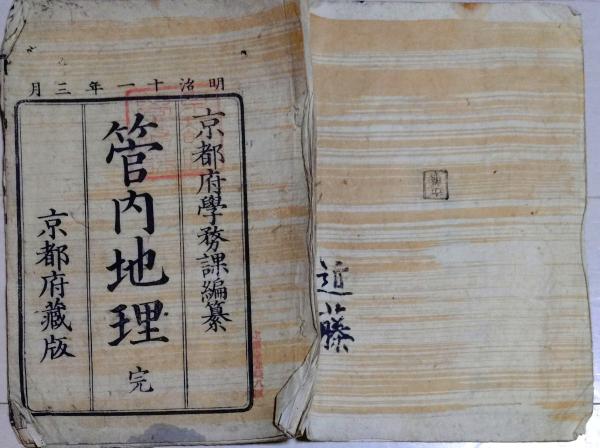 明治十一年三月
京都府學務課編纂
管内地理 完
京都府藏版
近藤